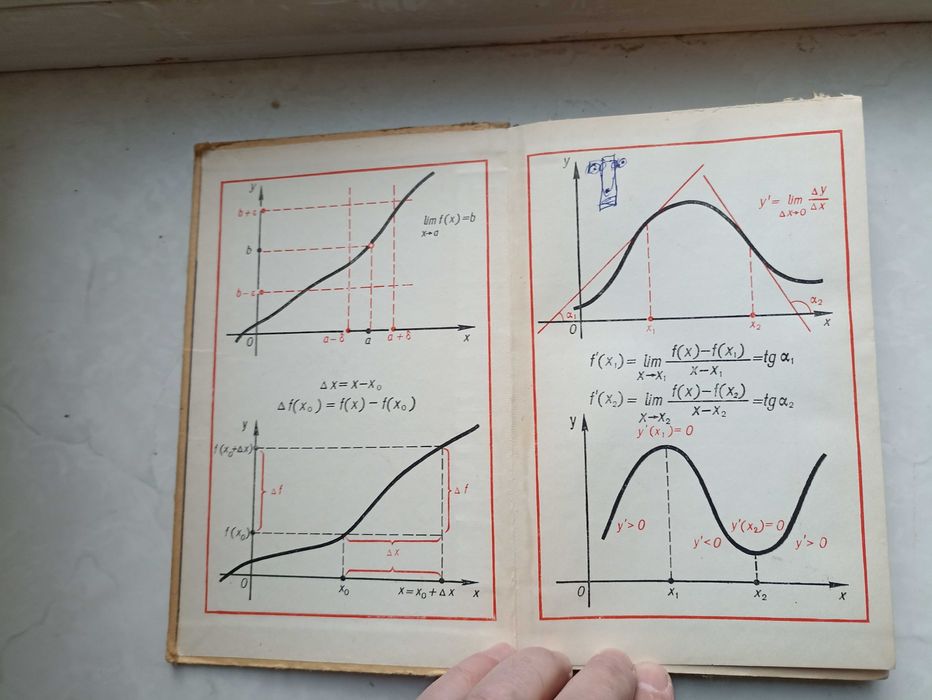 y
b+ε
b
b−ε
lim f(x)=b
x→a
0
a−δ
a
a+δ
x
Δx=x−x₀
Δf(x₀)=f(x)−f(x₀)
y
f(x₀+Δx)
Δf
Δf
f(x₀)
Δx
0
x₀
x=x₀+Δx
x
y
y'= lim Δy/Δx
Δx→0
α₁
α₂
0
x₁
x₂
x
f'(x₁)= lim f(x)−f(x₁)/x−x₁ =tg α₁
x→x₁
f'(x₂)= lim f(x)−f(x₂)/x−x₂ =tg α₂
x→x₂
y
y'(x₁)=0
y'>0
y'<0
y'(x₂)=0
y'>0
0
x₁
x₂
x